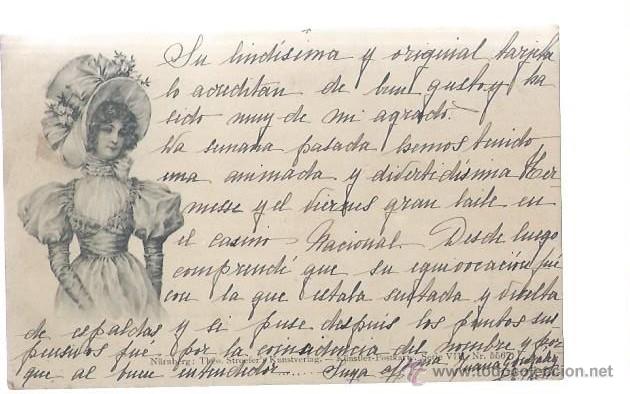 Su lindísima y original tarjeta
lo acreditan de buen gusto y ha
sido muy de mi agrado.
La semana pasada hemos tenido
una animada y divertidísima Ker-
messe y el viernes gran baile en
el casino Nacional. Desde luego
comprendí que su equivocación fué
con la que estaba sentada y vuelta
de espaldas y si puse despuis los puntos sus
pensivos fué por la coincidencia del nombre y por
Nürnberg: Theo. Stroefer's Kunstverlag. — Künstler-Postkarte Serie VIII. Nr. 556
que al buen entendedor..... Suya
todocoleccion.net